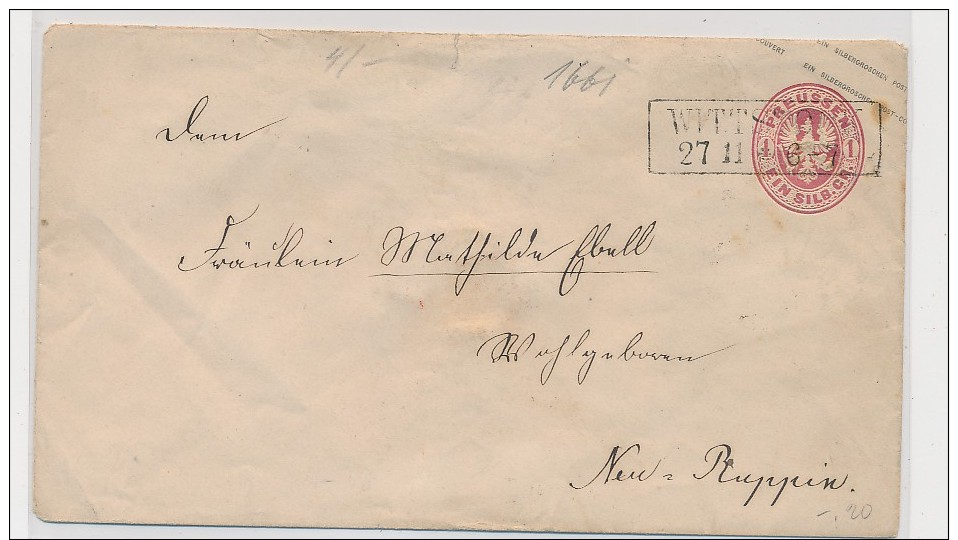 4/-
1661
COUVERT EIN SILBERGROSCHEN POST
EIN SILBERGROSCHEN POST-CO
27 11 6-7
PREUSSEN
1 1
EIN SILB. GR.
Dem
Fräulein Mathilde Ebell
Wohlgeboren
Neu = Ruppin.
-.20